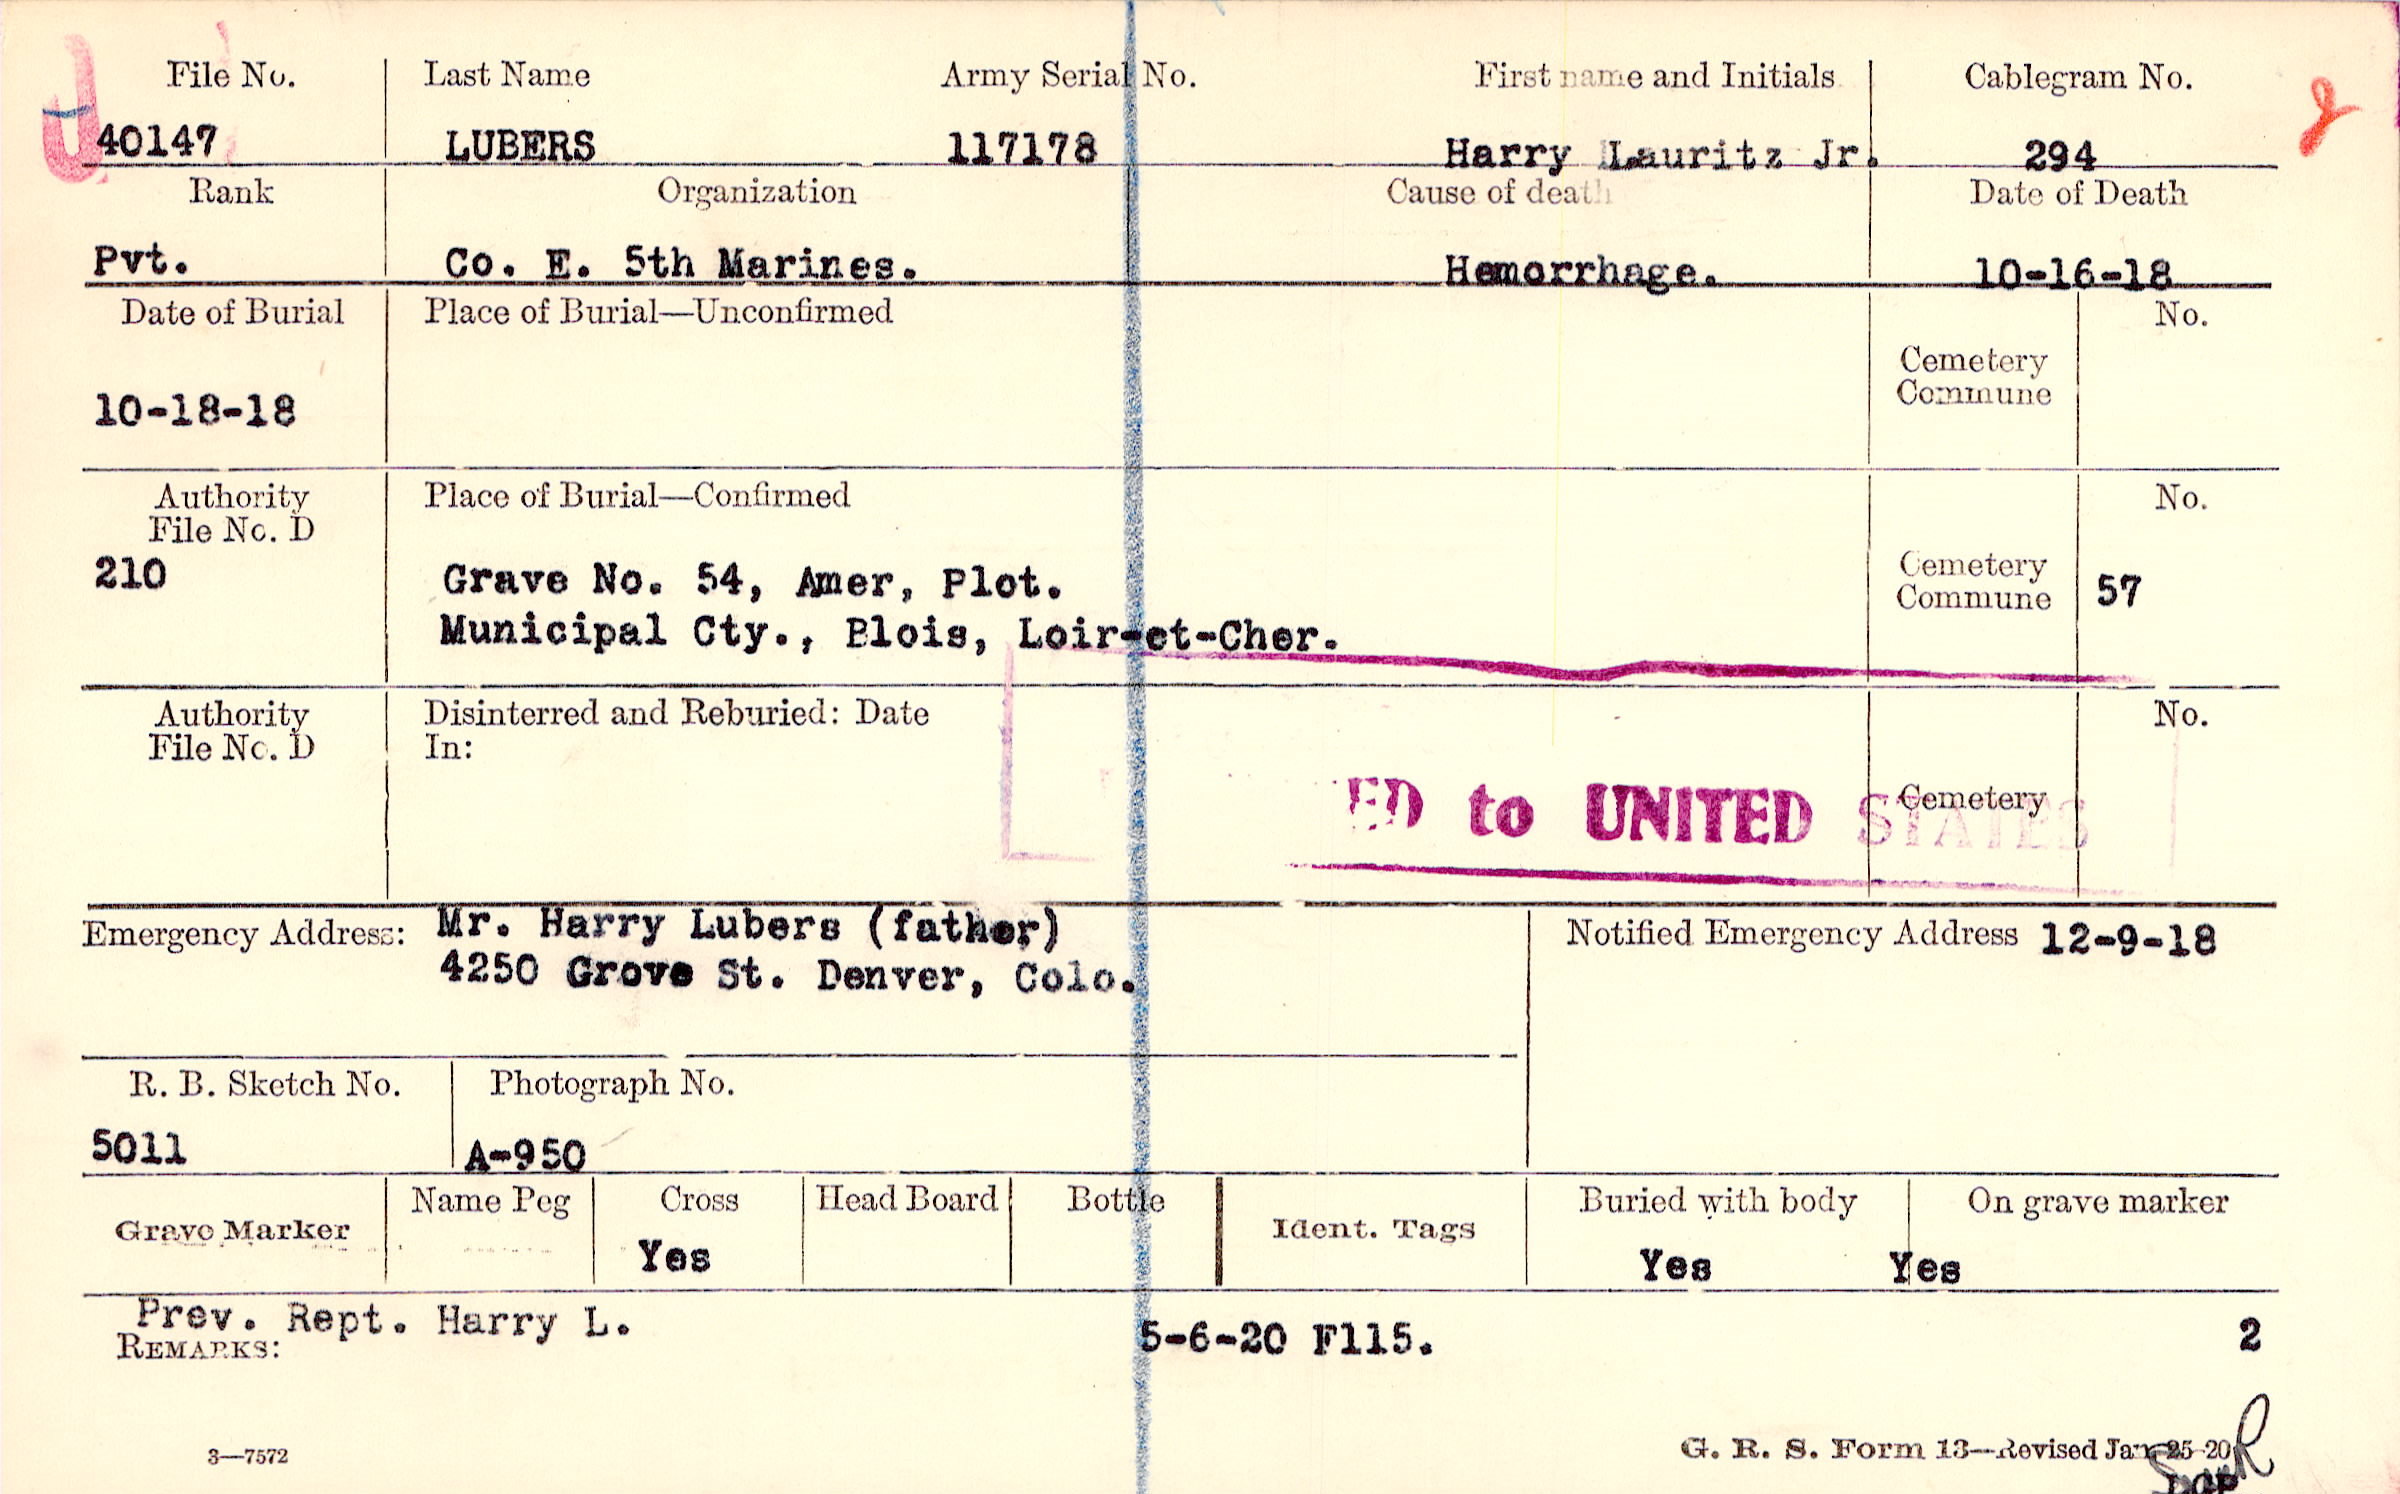 File No. Last Name Army Serial No. First name and Initials Cablegram No.
40147 LUBERS 117178 Harry Lauritz Jr. 294
Rank Organization Cause of death Date of Death
Pvt. Co. E. 5th Marines. Hemorrhage. 10-16-18
Date of Burial Place of Burial—Unconfirmed No.
Cemetery
Commune
10-18-18
Authority Place of Burial—Confirmed No.
File No. D
210 Grave No. 54, Amer, Plot. Cemetery
Commune 57
Municipal Cty., Blois, Loir-et-Cher.
Authority Disinterred and Reburied: Date No.
File No. D In:
Cemetery
ED to UNITED STATES
Emergency Address: Mr. Harry Lubers (father) Notified Emergency Address 12-9-18
4250 Grove St. Denver, Colo.
R. B. Sketch No. Photograph No.
5011 A-950
Grave Marker Name Peg Cross Head Board Bottle Ident. Tags Buried with body On grave marker
Yes Yes Yes
Prev. Rept. Harry L. 5-6-20 F115. 2
REMARKS:
3—7572 G. R. S. Form 13—Revised Jan. 25-20